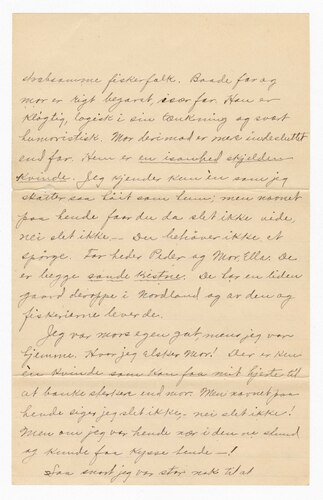 strebsomme fiskerfolk. Baade far og
mor er rigt begavet, især far. Han er
kløgtig, logisk i sin tænkning og svært
humoristisk. Mor derimod er mer indesluttet
end far. Hun er en isandhed sjelden
kvinde. Jeg kjender kun èn som jeg
skatter saa høit som hun; men navnet
paa hende faar du da slet ikke vide,
nei slet ikke — Du behøver ikke at
spørge. Far heder Peder og Mor Elle. De
er begge sande kristne. De har en liden
gaard deroppe i Nordland og av den og
fiskerierne lever de.
Jeg var mors egen gut, mens jeg var
hjemme. Hvor jeg elsker Mor! Der er kun
èn kvinde som kan faa mit hjerte til
at banke sterkere end mor. Men navnet paa
hende siger jeg slet ikke — nei slet ikke!
Men om jeg var hende nær i denne stund
og kunde faa kysse hende —!
Saa snart jeg var stor nok til at